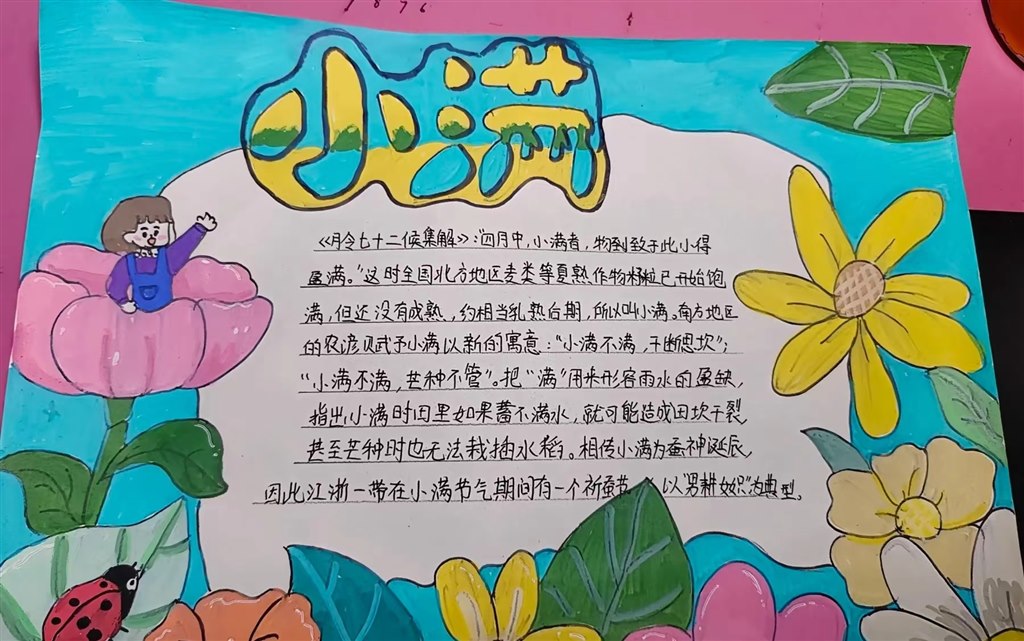 小满
《月令七十二候集解》:“四月中,小满者,物到致于此小得
盈满。”这时全国北方地区麦类等夏熟作物籽粒已开始饱
满,但还没有成熟,约相当乳熟后期,所以叫小满。南方地区
的农谚贝武予小满以新的寓意:“小满不满,干断思坎”;
“小满不满,芒种不管”。把“满”用来形容雨水的盈缺,
指出小满时田里如果蓄不满水,就可能造成田坎干裂,
甚至芒种时也无法栽插水稻。相传小满为蚕神诞辰,
因此江浙一带在小满节气期间有一个祈蚕节 以“男耕女织”为典型。